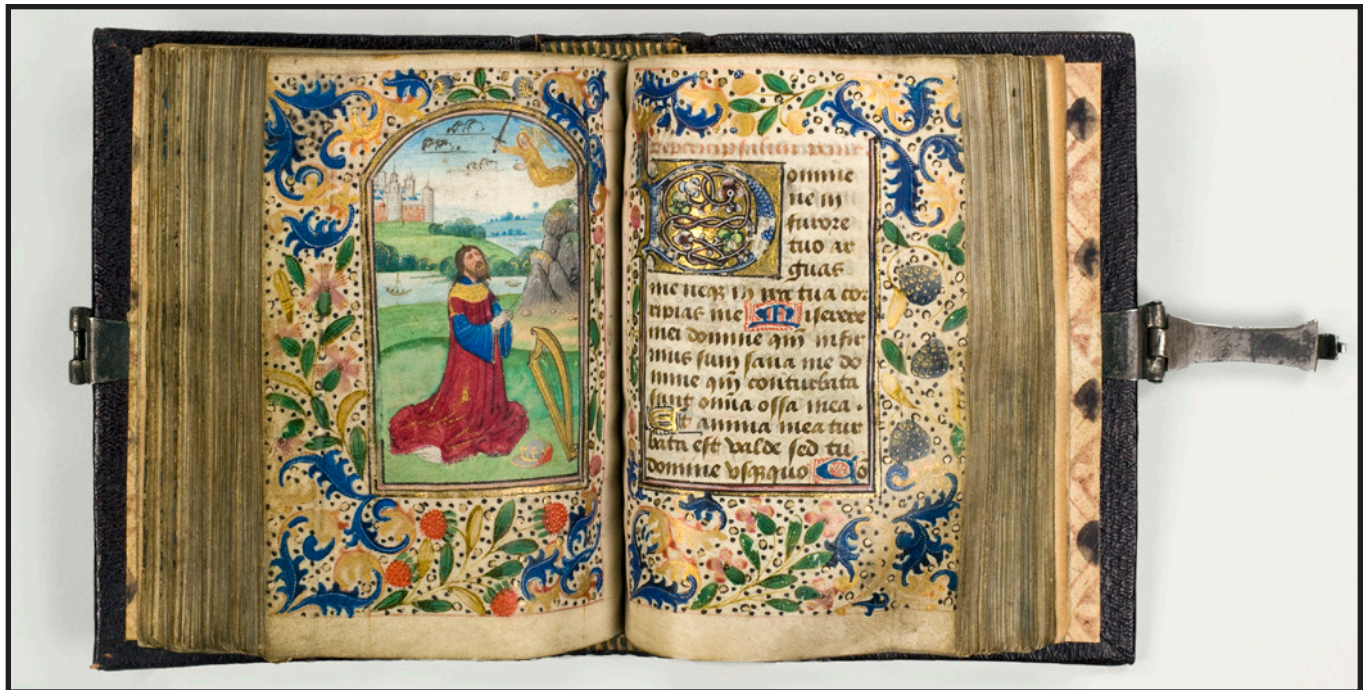 Septem psalmi penit
Domine
ne in
furore
tuo ar
guas
me neqꝫ in ira tua cor
ripias me Miserere
mei domine qm̄ infir
mus sum sana me do
mine qm̄ conturbata
sunt om̄ia ossa mea .
Et anima mea tur
bata est valde sed tu
domine vsqꝫquo Co